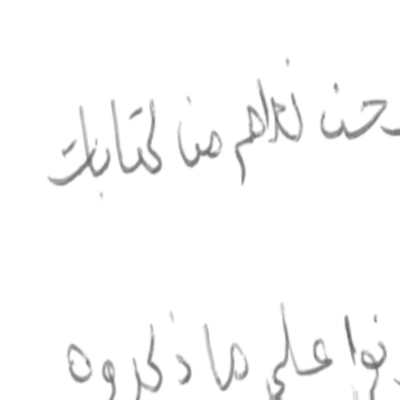 حن نعلم من كتابات
نوا على ما ذكروه